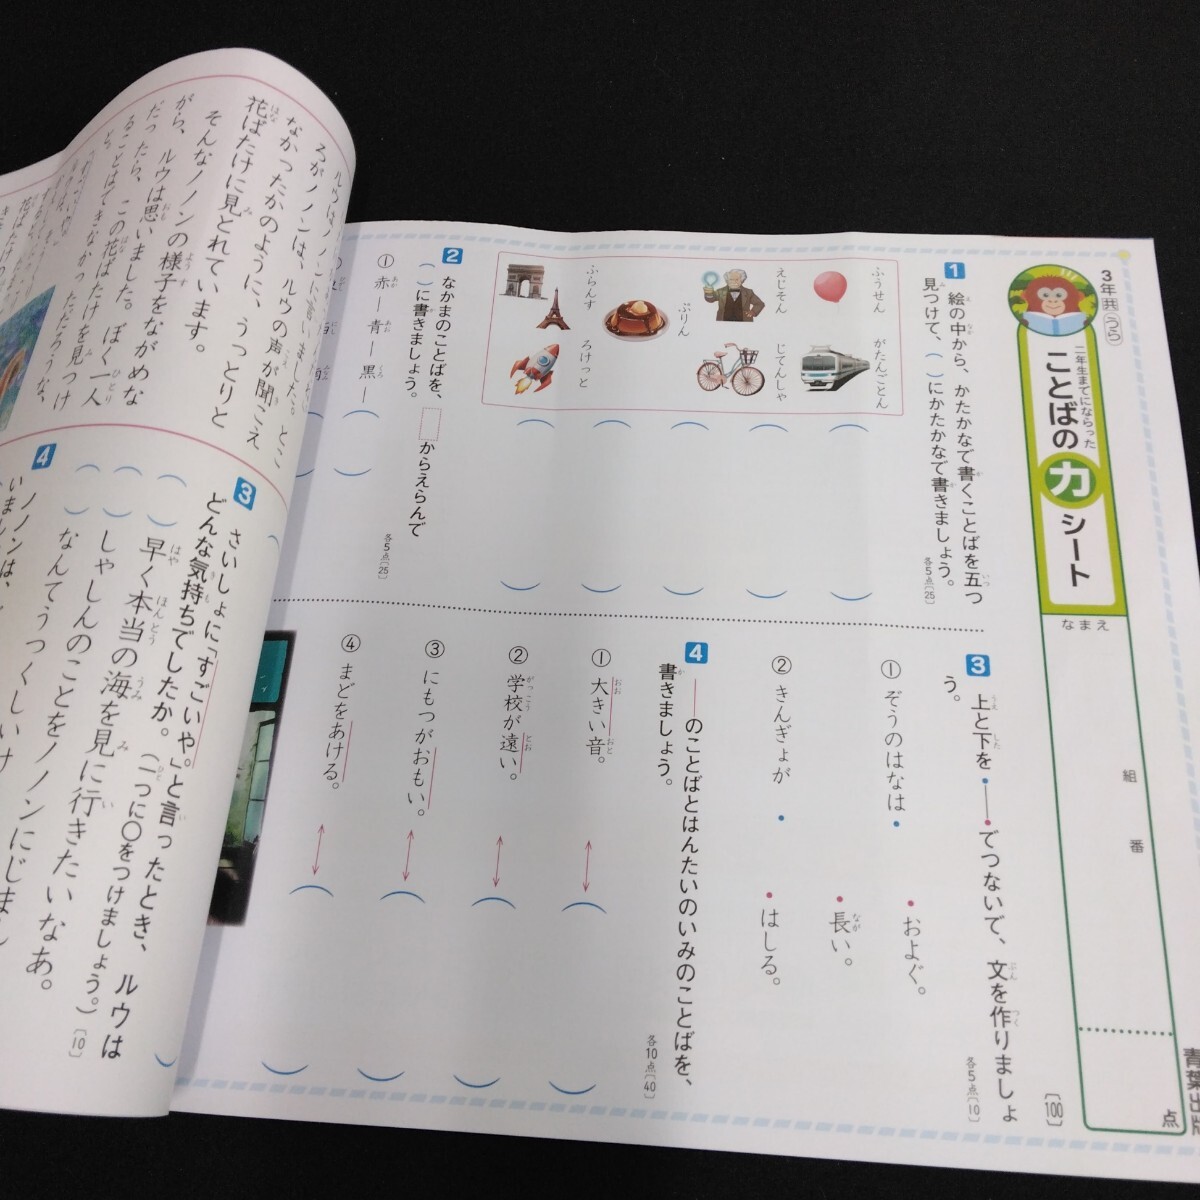 3年 共 うら
二年生までにならった
ことばの力シート
なまえ
組
番
点
〔100〕
青葉出版
1 絵の中から、かたかなで書くことばを五つ
見つけて、( )にかたかなで書きましょう。
各5点〔25〕
ふうせん
がたんごとん
えじそん
じてんしゃ
ぷりん
ふらんす
ろけっと
2 なかまのことばを、からえらんで
( )に書きましょう。
各5点〔25〕
① 赤 ー 青 ー 黒 ー
3 上と下を・――・でつないで、文を作りましょ
う。
各5点〔10〕
① ぞうのはなは・
② きんぎょが・
・およぐ。
・長い。
・はしる。
4 ――のことばとはんたいのいみのことばを、
書きましょう。
各10点〔40〕
① 大きい音。
② 学校が遠い。
③ にもつがおもい。
④ まどをあける。
ろがノノンは、ルウの声が聞こえ
なかったかのように、うっとりと
花ばたけに見とれています。
そんなノノンの様子をながめな
がら、ルウは思いました。ぼく一人
だったら、この花ばたけを見つけ
ることはできなかっただろうな、
と
3 さいしょに「すごいや。」と言ったとき、ルウは
どんな気持ちでしたか。(一つに○をつけましょう。)
〔10〕
( )早く本当の海を見に行きたいなあ。
( )しゃしんのことをノノンにじまん
( )なんてうつくしいけ
4 ノノンは、
いまし